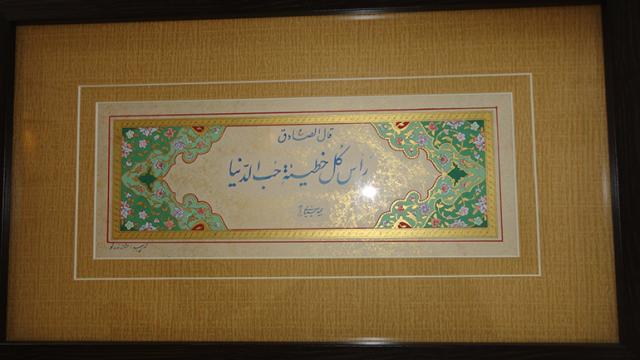 قال الصادق
راس كل خطيئة حب الدنيا